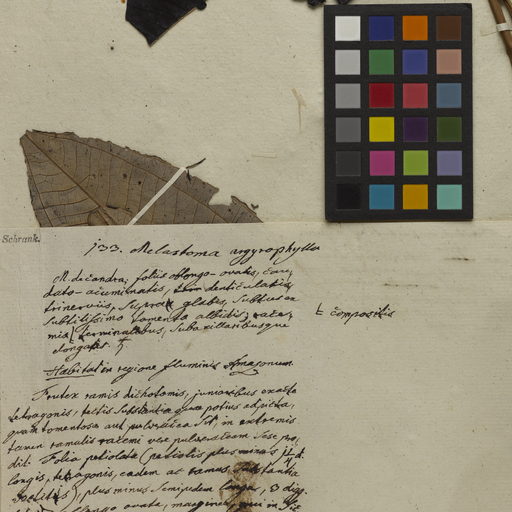 Schrank.
133. Melastoma argyrophylla
M. decandra; foliis oblongo-ovatis,
dato-acuminatis, denticulatis
trinerviis, supra glabris, subtus ex
subtilissimo tomento albidis;
mis terminalibus, subaxillaribusque
elongatis.
t compositis
Habitat in regione fluminis Amazonum
Frutex ramis dichotomis, junioribus exacte
tetragonis, tectis substantia quam potius adpicta,
quam tomentosa aut pulverulea sit, in extremis
tamen ramulis racemi vere pulveream sese pro,
dit. Folia petiolata (petiolis plus minus
longis, tetragonis, eadem ac ramus, substantia
), plus minus semipedem longa, 3 digg.
ovata, margine,